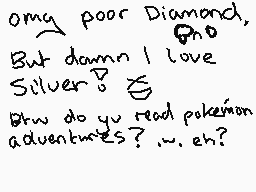 omg poor Diamond,
But damn I love
Silver!
Btw do yu read pokémon
adventures? .w. eh?